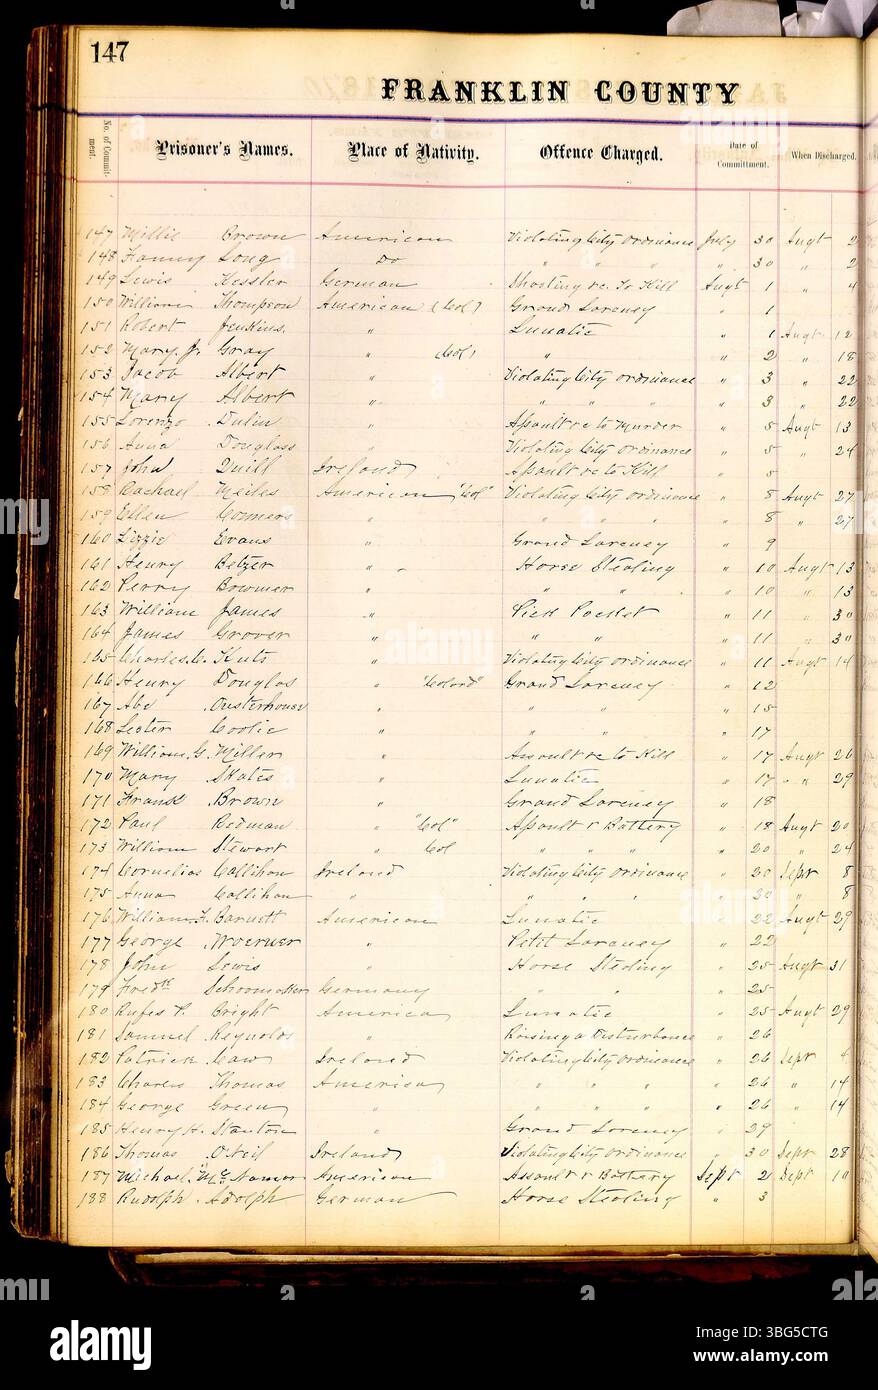 147
FRANKLIN COUNTY
No. of Commitment. Prisoner's Names. Place of Nativity. Offence Charged. Date of Commitment. When Discharged.
147 Millie Brown American Violating City Ordinance July 30 Augt 2
148 Fanny Long Do " " " " 30 " 2
149 Lewis Kessler German Shooting &c. To Kill Augt 1 " 4
150 William Thompson American (Col) Grand Larceny " 1
151 Robert Jenkins. " Lunatic " 1 Augt 12
152 Mary. J. Gray " (Col) " " 2 " 18
153 Jacob Albert " Violating City Ordinance " 3 " 22
154 Mary Albert " " " " " 3 " 22
155 Lorenzo Dulin " Assault &c to Murder " 5 Augt 13
156 Anna Douglass " Violating City Ordinance " 5 " 24
157 John Quill Ireland Assault &c to Kill " 5
158 Rachael Meiles American "Col" Violating City Ordinance " 8 Augt 27
159 Ellen Conners " " " " " 8 " 27
160 Lizzie Evans " Grand Larceney " 9
161 Henry Betzer " Horse Stealing " 10 Augt 13
162 Perry Bowmer " " " " 10 " 13
163 William James " Pick Pocket " 11 " 30
164 James Grover " " " " 11 " 30
165 Charles. C. Kuts " Violating City Ordinance " 11 Augt 14
166 Henry Douglas " "Colord" Grand Larceney " 12
167 Abe Ousterhouse " " " " 15
168 Lester Coolie " " " " 17
169 William. G. Miller " Assault &c to Kill " 17 Augt 26
170 Mary Skates " Lunatic " 17 " 29
171 Frank Brown " Grand Larceney " 18
172 Paul Redman " "Col" Assault & Battery " 18 Augt 20
173 William Stewart " Col " " " " 20 " 24
174 Cornelius Callihan Ireland Violating City Ordinance " 20 Sept 8
175 Anna Callihan " " " " " 20 " 8
176 William. F. Barnett American Lunatic " 22 Augt 29
177 George Woerner " Petit Larceney " 22
178 John Lewis " Horse Stealing " 25 Augt 31
179 Fredk Schoomaker Germany " " " 25
180 Rufes P. Bright America Lunatic " 25 Augt 29
181 Samuel Reynolds " Raising a Disturbance " 26
182 Patrick Caw Ireland Violating City Ordinance " 26 Sept 4
183 Charles Thomas America " " " " 26 " 14
184 George Green " " " " " 26 " 14
185 Henry H. Stanton " Grand Larceney " 29
186 Thomas Oneil Ireland Violating City Ordinance " 30 Sept 28
187 Michael McNamor American Assault & Battery Sept 2 Sept 10
188 Rudolph Adolph German Horse Stealing " 3
alamy
Image ID: 3BG5CTG
www.alamy.com